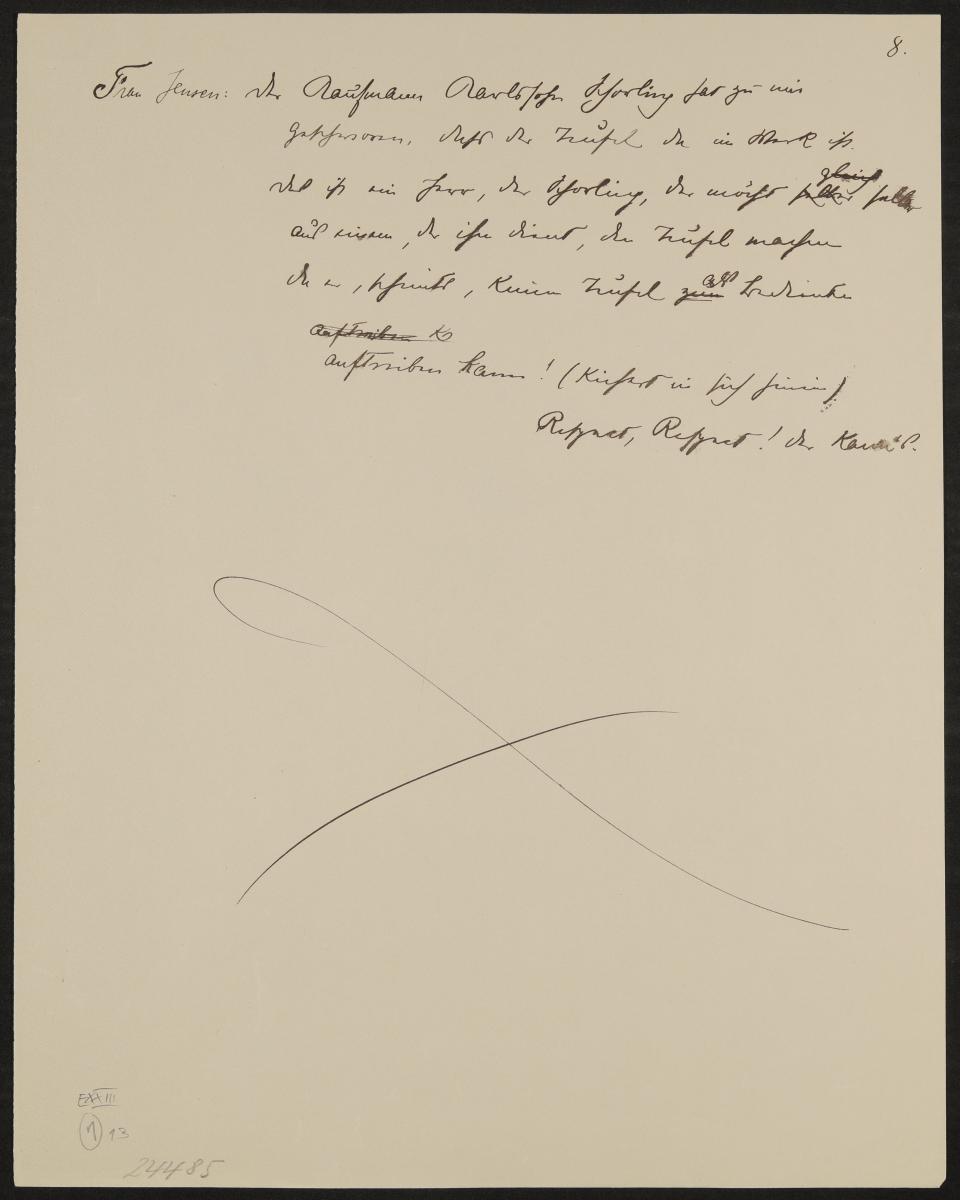 8.
Frau Jensen: Der Kaufmann Karlssohn Schorling hat zu mir
geschworen, dass der Teufel da im Werk ist.
Das ist ein Herr, der Schorling, der möcht selber gleich selber
aus einem, der ihn dient, den Teufel machen
da er, scheints, keinen Teufel zum als Bedienten
auftreiben Ko
auftreiben kann! (Kichert in sich hinein)
Respect, Respect! der
EXXIII
1 13
24485